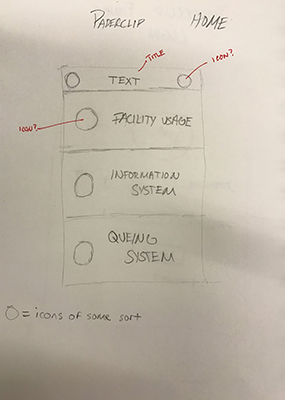 PAPERCLIP HOME
TITLE
TEXT
ICON?
ICON?
FACILITY USAGE
INFORMATION
SYSTEM
QUEING
SYSTEM
O = icons of some sort